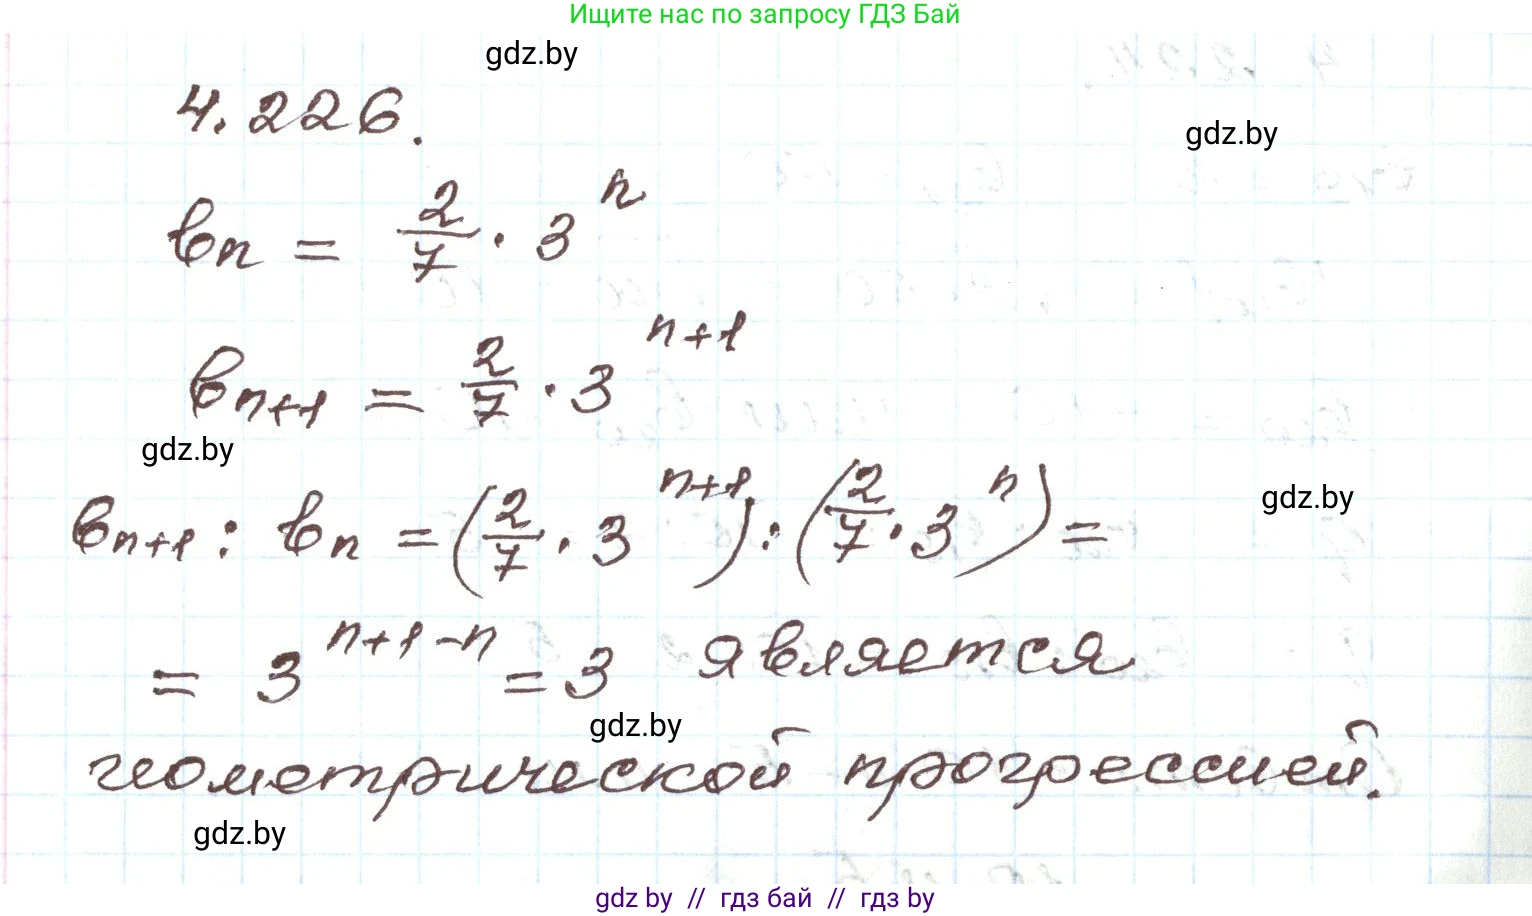 Ищите нас по запросу ГДЗ Бай
gdz.by
4.226.
gdz.by
bn = 2/7 · 3^n
bn+1 = 2/7 · 3^n+1
gdz.by
gdz.by
bn+1 : bn = (2/7 · 3^n+1) : (2/7 · 3^n) =
= 3^n+1-n = 3 является
gdz.by
геометрической прогрессией.
gdz.by
gdz by // гдз бай // гдз by